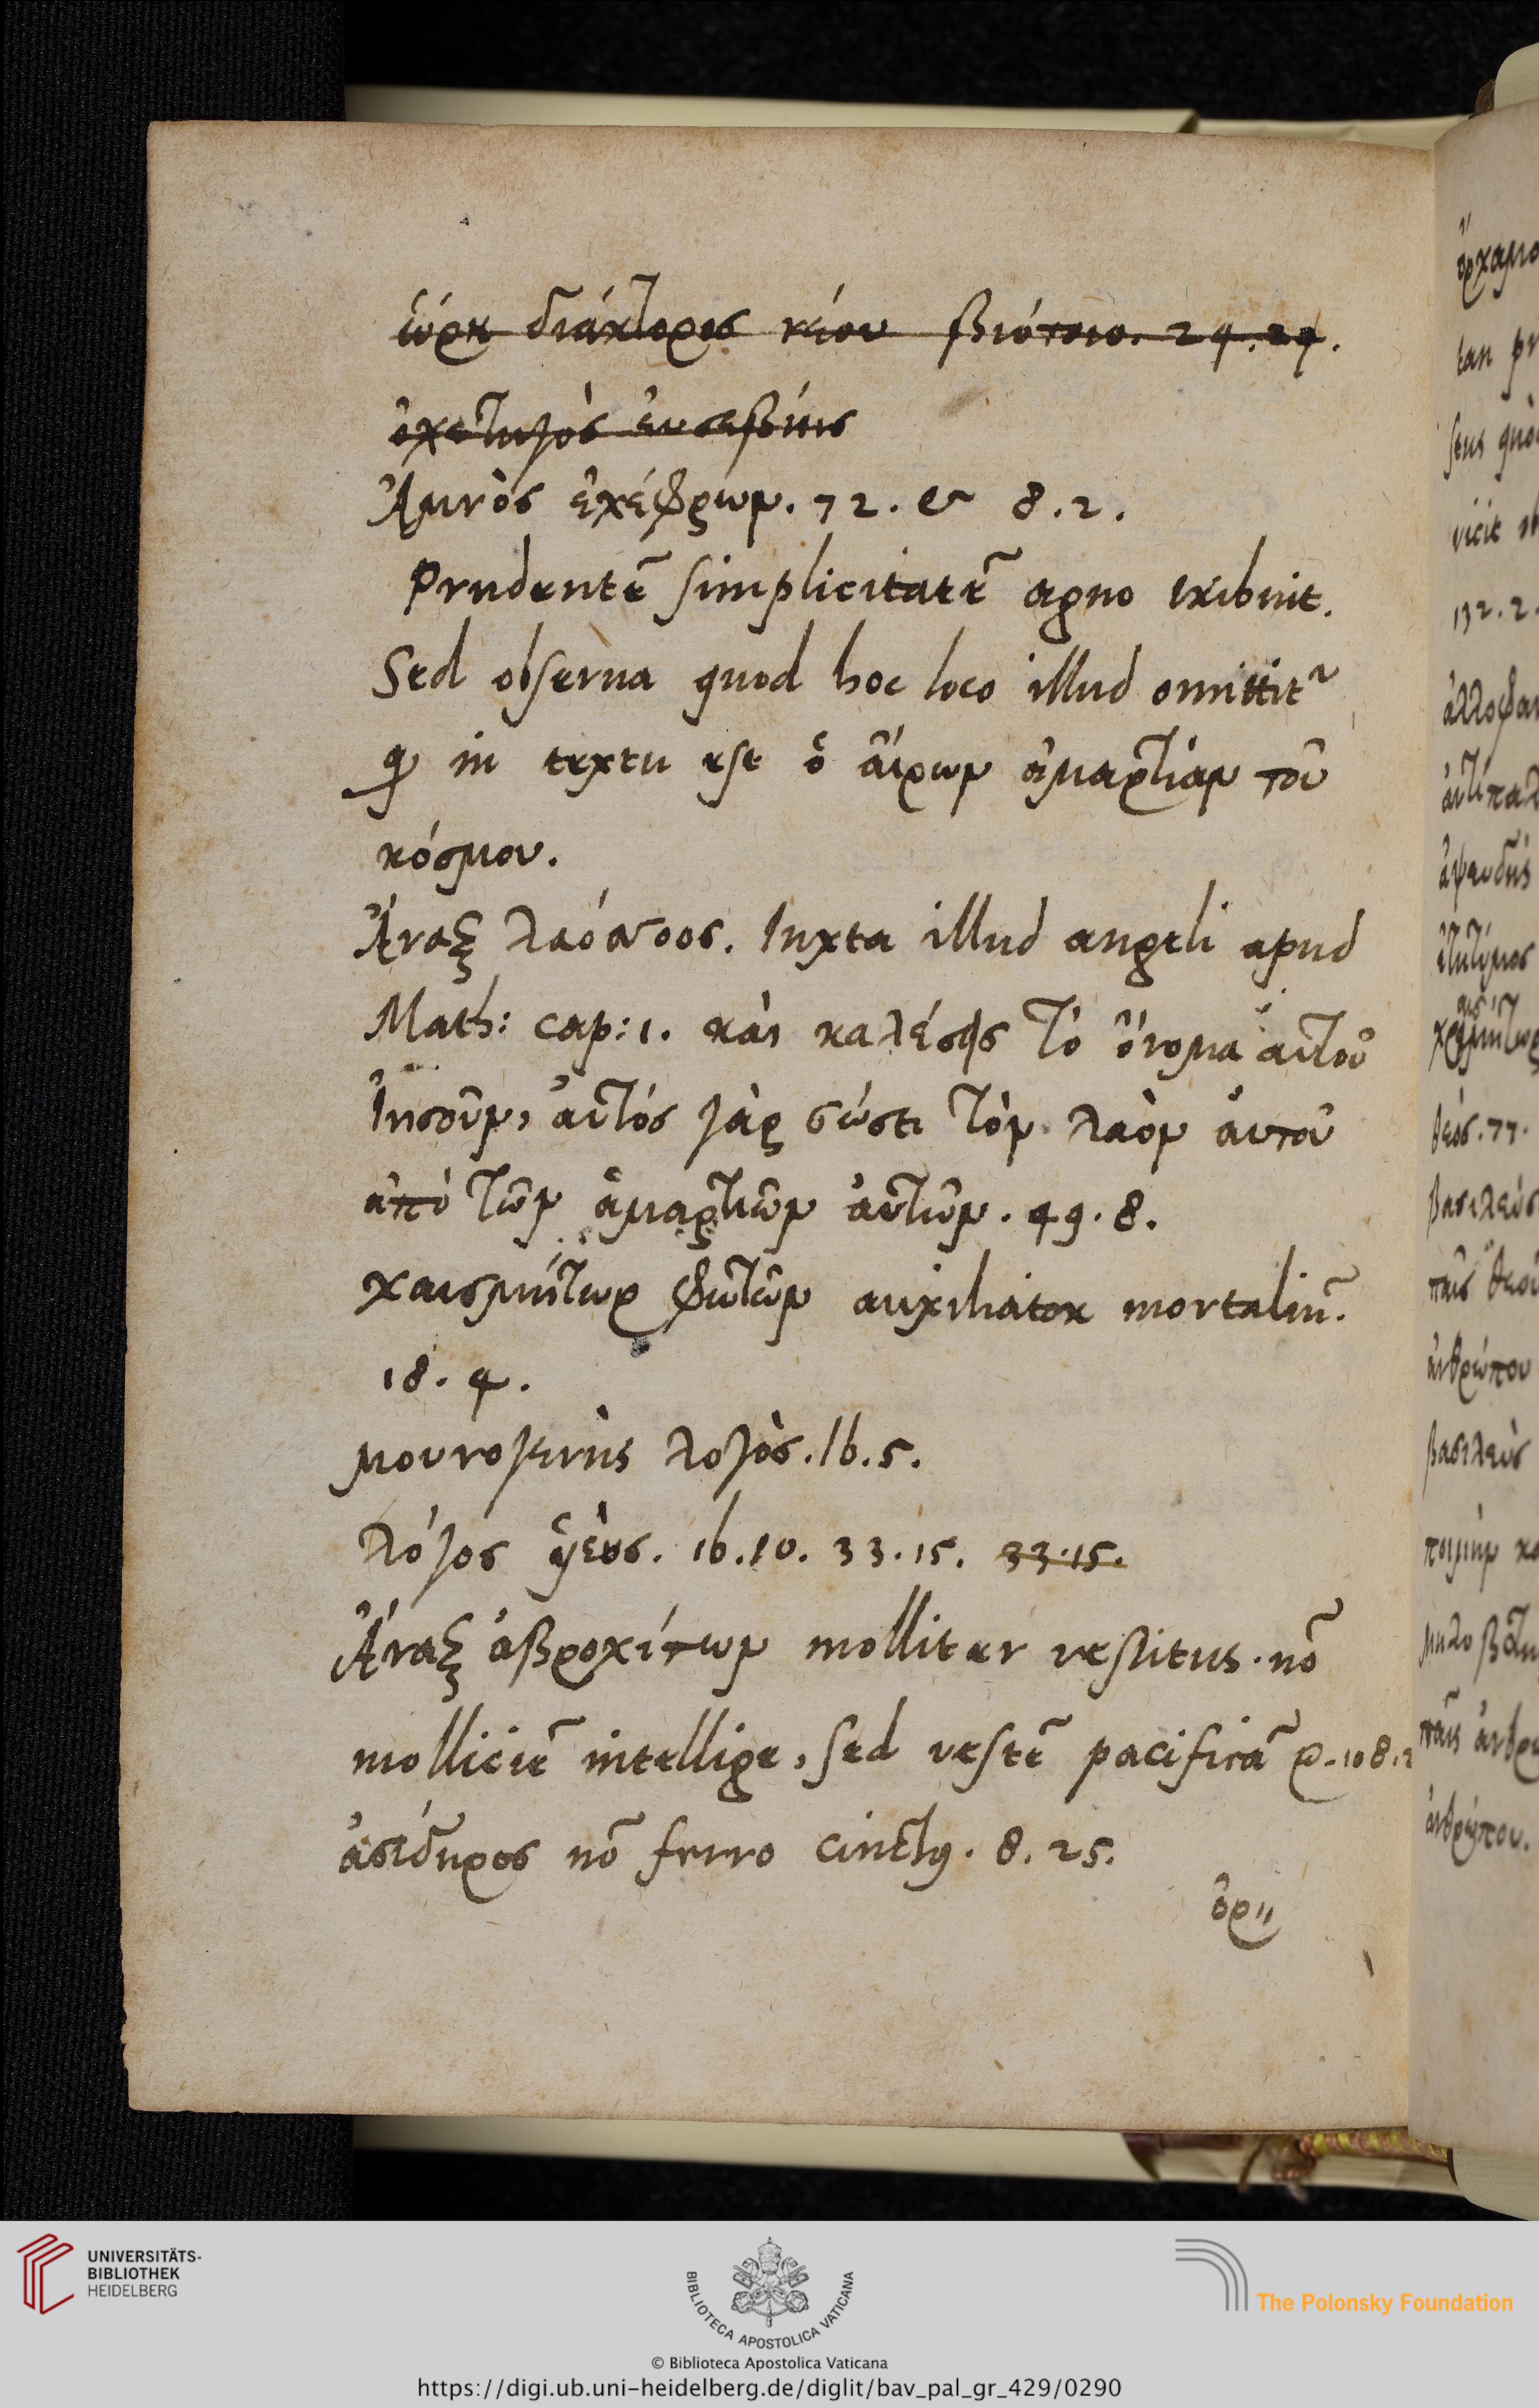 εὑρε διάκτορος νέου βιότοιο. 24.24.
ὀχετηγὸς εὐσεβίης
Ἀμνὸς ἐχέφρων. 72. & 8.2.
Prudentē simplicitatē agno
Sed obserua quod hoc loco illud omittit᷑
in textu est ὁ ἄιρων ἁμαρτίαν τοῦ
κόσμου.
Ἄναξ λαόσσοος. Iuxta illud angeli apud
Math: cap: 1. καὶ καλέσεις τὸ ὄνομα αὐτοῦ
Ἰησοῦν, ἀυτός γὰρ σώσει τὸν λαὸν ἀυτοῦ
ἀπὸ τῶν ἁμαρτιῶν ἀυτῶν. 49.8.
χαισμήτωρ φωτῶν auxiliator mortaliū.
18.4.
μουνογενὴς λογὸς. Ib. 5.
Λόγος ib. 10. 33.15. 33.15.
Ἄναξ ἁβροχίτων molliter vestitus. nō
molliciē intellige, sed vestē pacificā 108.
ἀσίδηρος nō ferro cinctus. 8.25.
ὄρ〃
ὄρχαμο
132.2.
θεός. 77.
βασιλεὺς
παῖς θεοῦ
ἀνθρώπου
βασιλεὺς
ποιμὴν
ἀνθρώπου.
UNIVERSITÄTS-
BIBLIOTHEK
HEIDELBERG
BIBLIOTECA APOSTOLICA VATICANA
The Polonsky Foundation
© Biblioteca Apostolica Vaticana
https://digi.ub.uni-heidelberg.de/diglit/bav_pal_gr_429/0290